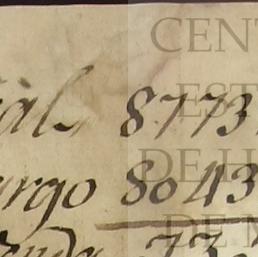 ial 8773
urgo 8043
CENT
EST
DE H
DE M